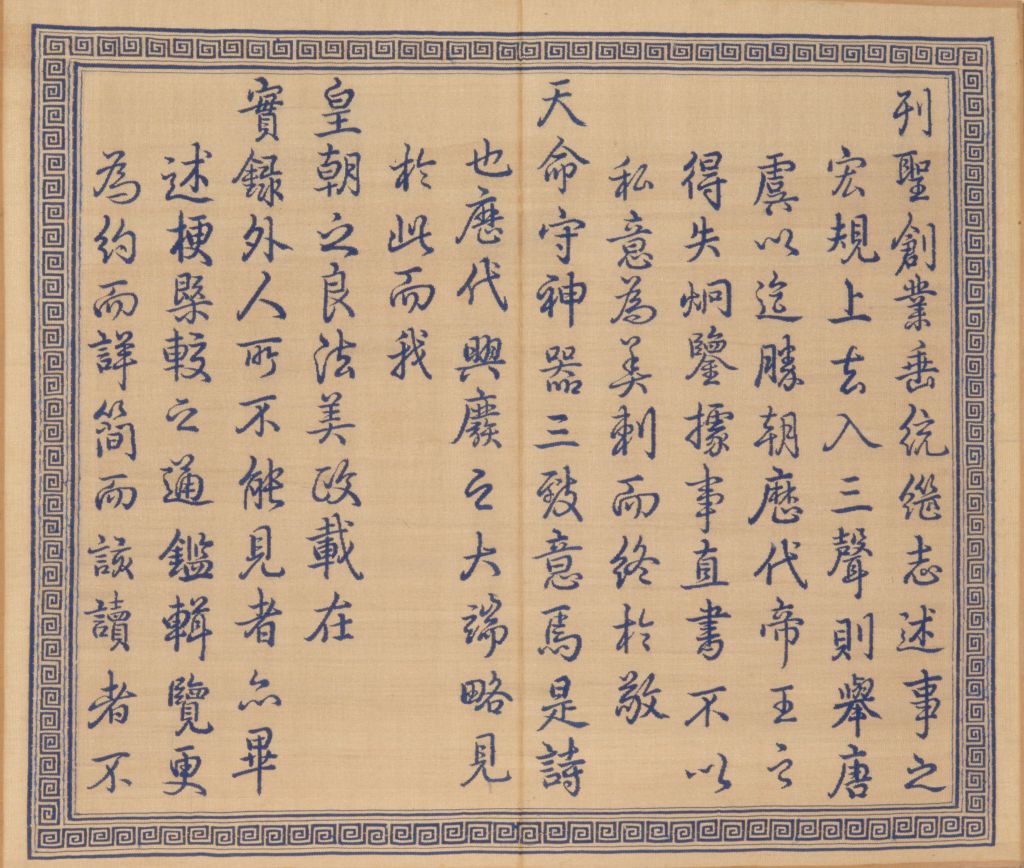 列聖創業垂統継志述事之
宏規上去入三聲則舉唐
虞以迄勝朝歷代帝王之
得失炯鑒據事直書不以
私意為美刺而終於敬
天命守神器三致意焉是詩
也歷代興廢之大端略見
於此而我
皇朝之良法美政載在
實錄外人所不能見者亦畢
述梗槩較之通鑑輯覽更
為約而詳簡而該讀者不